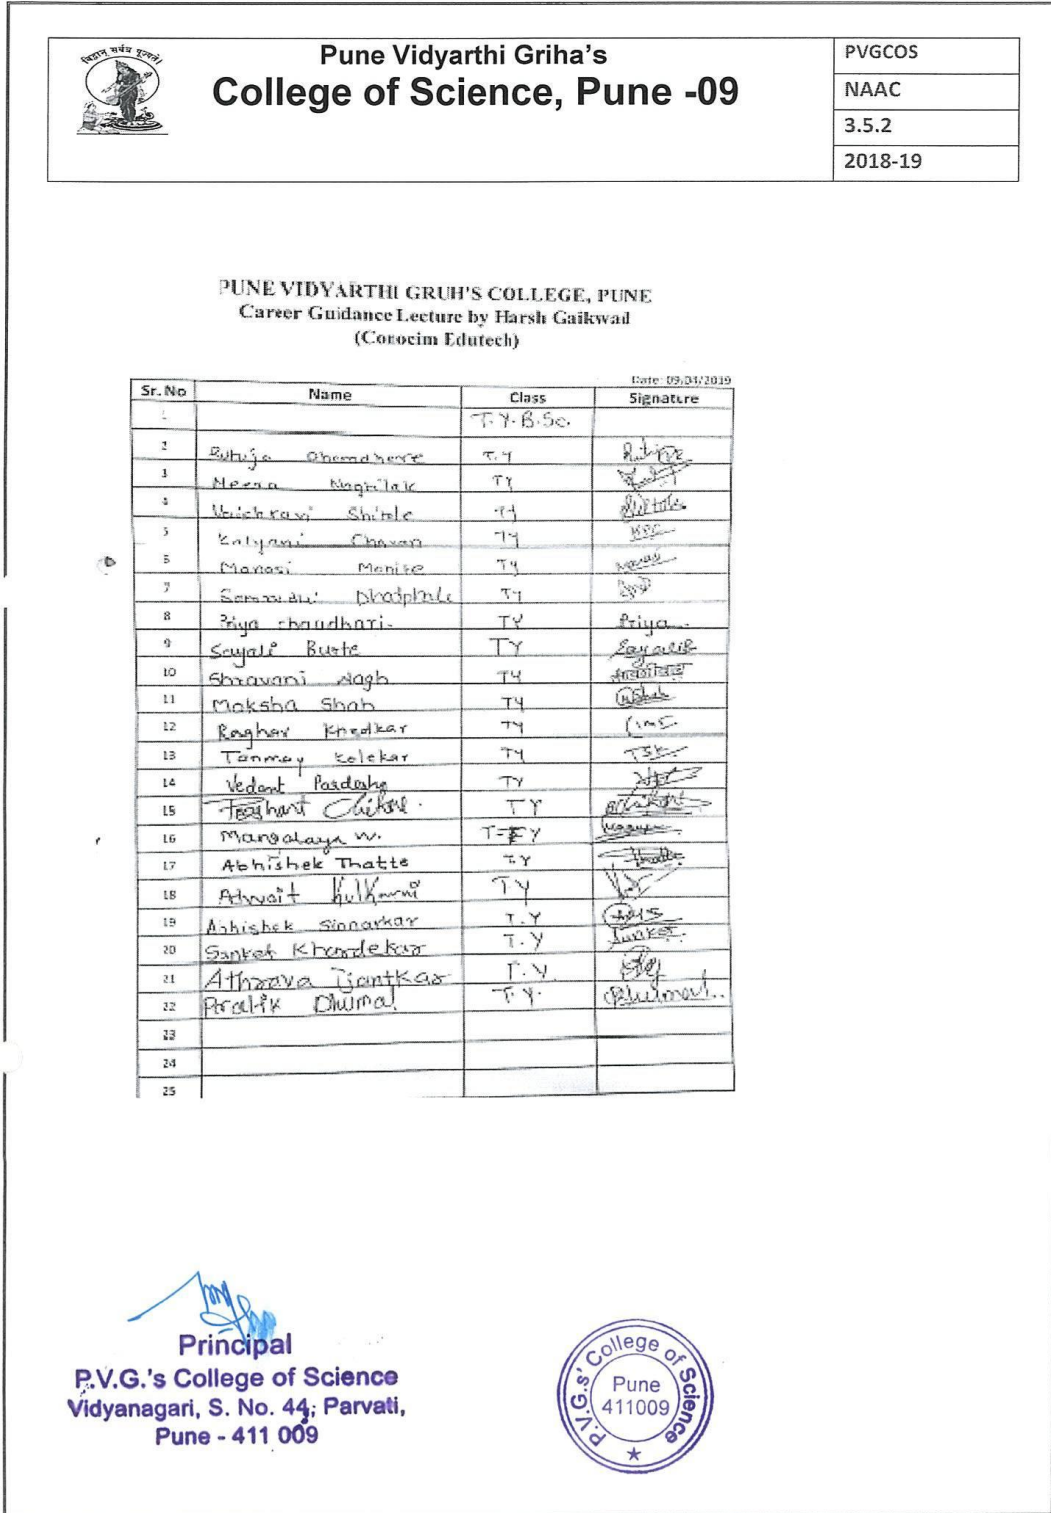 विद्वान् सर्वत्र पूज्यते।
Pune Vidyarthi Griha's
College of Science, Pune -09
PVGCOS
NAAC
3.5.2
2018-19
PUNE VIDYARTHI GRUH'S COLLEGE, PUNE
Career Guidance Lecture by Harsh Gaikwad
(Corocim Edutech)
Date: 09/04/2019
Sr. No Name Class Signature
1 T.Y.B.Sc.
2 Rutuja T.Y
3 Meera TY
4 Vaishnavi Shitole TY
5 Kalyani Chavan TY
6 Manasi TY
7 TY
8 Priya chaudhari. TY Priya
9 Sayali Burte TY Sayali
10 Shravani Wagh TY
11 Moksha Shah TY MShah
12 Raghav Khedkar TY
13 Tanmay Kolekar TY TSK
14 Vedant Pardeshi TY
15 Prashant TY
16 Mangalaya W. T=FY
17 Abhishek Thatte T.Y Thatte
18 Advait Kulkarni TY
19 Abhishek Sinnarkar T.Y
20 Sanket Khandekar T.Y Sanket
21 Athrava Ijantkar T.Y.
22 Pratik Dhumal T.Y. Dhumal..
23
24
25
Principal
P.V.G.'s College of Science
Vidyanagari, S. No. 44, Parvati,
Pune - 411 009
P.V.G.s' College of Science
Pune
411009